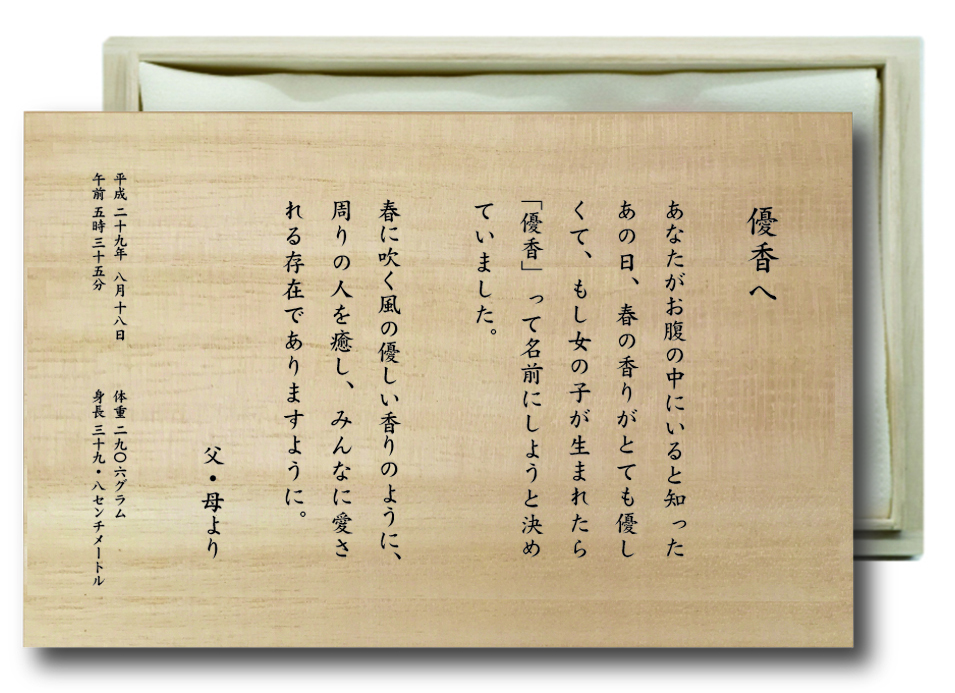 優香へ
あなたがお腹の中にいると知った
あの日、春の香りがとても優し
くて、もし女の子が生まれたら
「優香」って名前にしようと決め
ていました。
春に吹く風の優しい香りのように、
周りの人を癒し、みんなに愛さ
れる存在でありますように。
父・母より
平成 二十九年 八月 十八日
午前 五時 三十五分
体重 二九〇六グラム
身長 三十九・八センチメートル